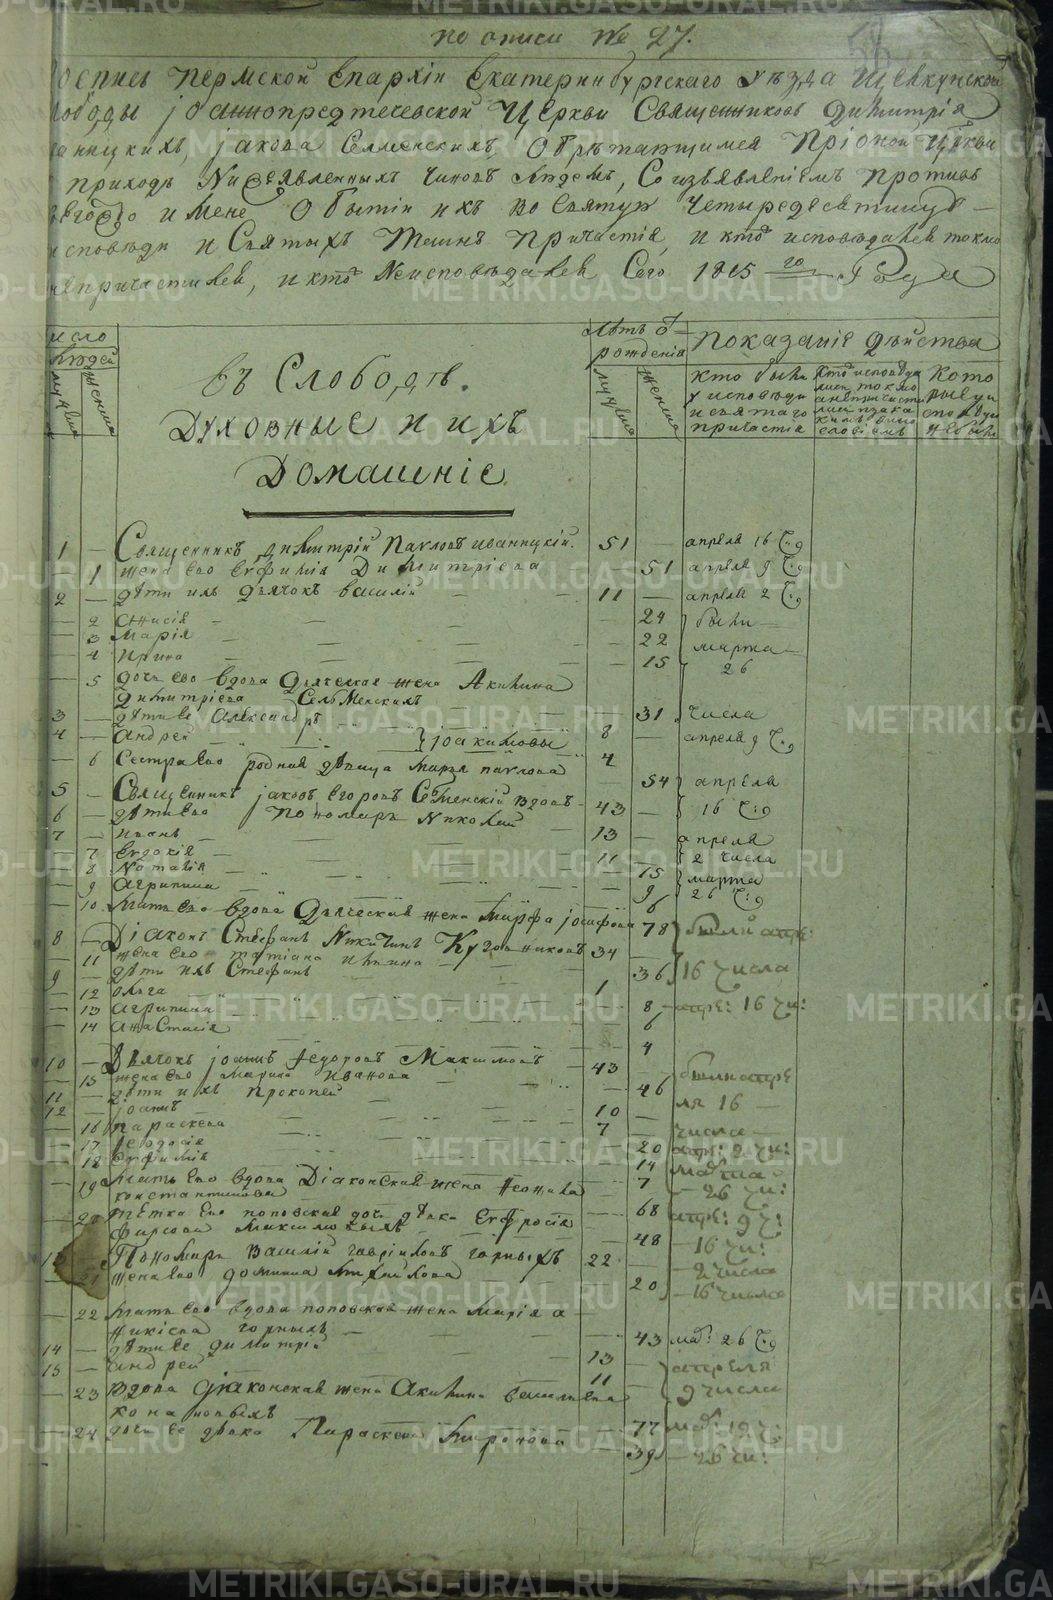 по описи № 27.
роспись пермской Епархіи Екатеринбургскаго уѣзда Щелкунской
слободы іоаннопредтечевской Церкви Священниковъ Димитрія
іакова Селменскихъ, обрѣтающимся При оной церкви
приходѣ Нижеявленныхъ чиновъ людемъ, Со изъявленіемъ противъ
коегождо имене о бытіи ихъ во святую четыредесятницу
исповѣди и Святыхъ Таинъ Причастія, и кто исповѣдался токмо
непричастился, и кто Неисповѣдался Сего 1815 го Года
число
людей
мужска
женска
въ Слободѣ.
Духовные и ихъ
Домашніе
Лѣтъ от
рожденія
мужска
женска
показаніе дѣйства
кто были
у исповѣди
и святаго
причастія
кто исповѣда
лись токмо
анепричасти
лись
Кото
рые у и
споведи
небыли
1 — Священникъ димитрій Павловъ иваницкій. 51 — апреля 16 чи
— 1 жена его Евфимія Димитріева — 51 апреля 9 чи
2 — дѣти ихъ дьячокъ василій 11 — апреля 2 чи
— 2 анисія — 24 были
— 3 марія — 22 марта
— 4 ирина — 15 26
— 5 дочь его вдова дьяческая жена Акилина
димитріева Сельменскихъ — 31 числа
3 — дѣти ее Александръ 8 — апреля 9 чи
4 — андрей } іоакимовы 4
— 6 Сестра его родная дѣвица марѳа павлова — 54 апреля
5 — Священникъ іаковъ Егоровъ Селменскій вдовъ 43 — 16 чи
6 — дѣти его пономарь Николай 13 — апреля
7 — иванъ 11 — 2 числа
— 7 Евдокія — 15 марта
— 8 Наталія — 9 26 чи
— 9 агрипина — 6
— 10 мать его вдова дьяческая жена марфа іосифова 78 были апре:
8 — Діаконъ Стефанъ Никитинъ 34
— 11 жена его татіана — 36 16 числа
9 — дѣти ихъ Стефанъ 1
— 12 олга — 8 апре: 16 чи:
— 13 агрипина — 6
— 14 анастасія — 4
10 — Дьячокъ іоаннъ Федоровъ Максимовъ 43 —
— 15 жена его марина иванова — 46 были апре
11 — дѣти ихъ прокопей 10 — ля 16
12 — іоаннъ 7 — числа
— 16 параскева — 20 апр: 9 чи:
— 17 феодосія — 14
— 18 евфимія — 7 26 чи:
— 19 мать его вдова Діаконская жена
константинова — 68 апре: 9 ч:
— 20 тетка его поповская дочь дѣвка Евфросія
фирсова — 48 16 чи:
13 — Пономарь василій гавріиловъ горныхъ 22 — 2 числа
— 21 жена его домника михайлова — 20 16 числа
— 22 мать его вдова поповская жена марія а
никіева горныхъ — 43 мар: 26 чи
14 — дѣти ее димитрій 13 — апреля
15 — андрей 11 — 9 числа
— 23 вдова діаконская жена Акилина василиева
— 77 мар: 19 ч:
— 24 дочь ее дѣвка Параскева миронова — 39 26 чи:
METRIKI.GASO-URAL.RU